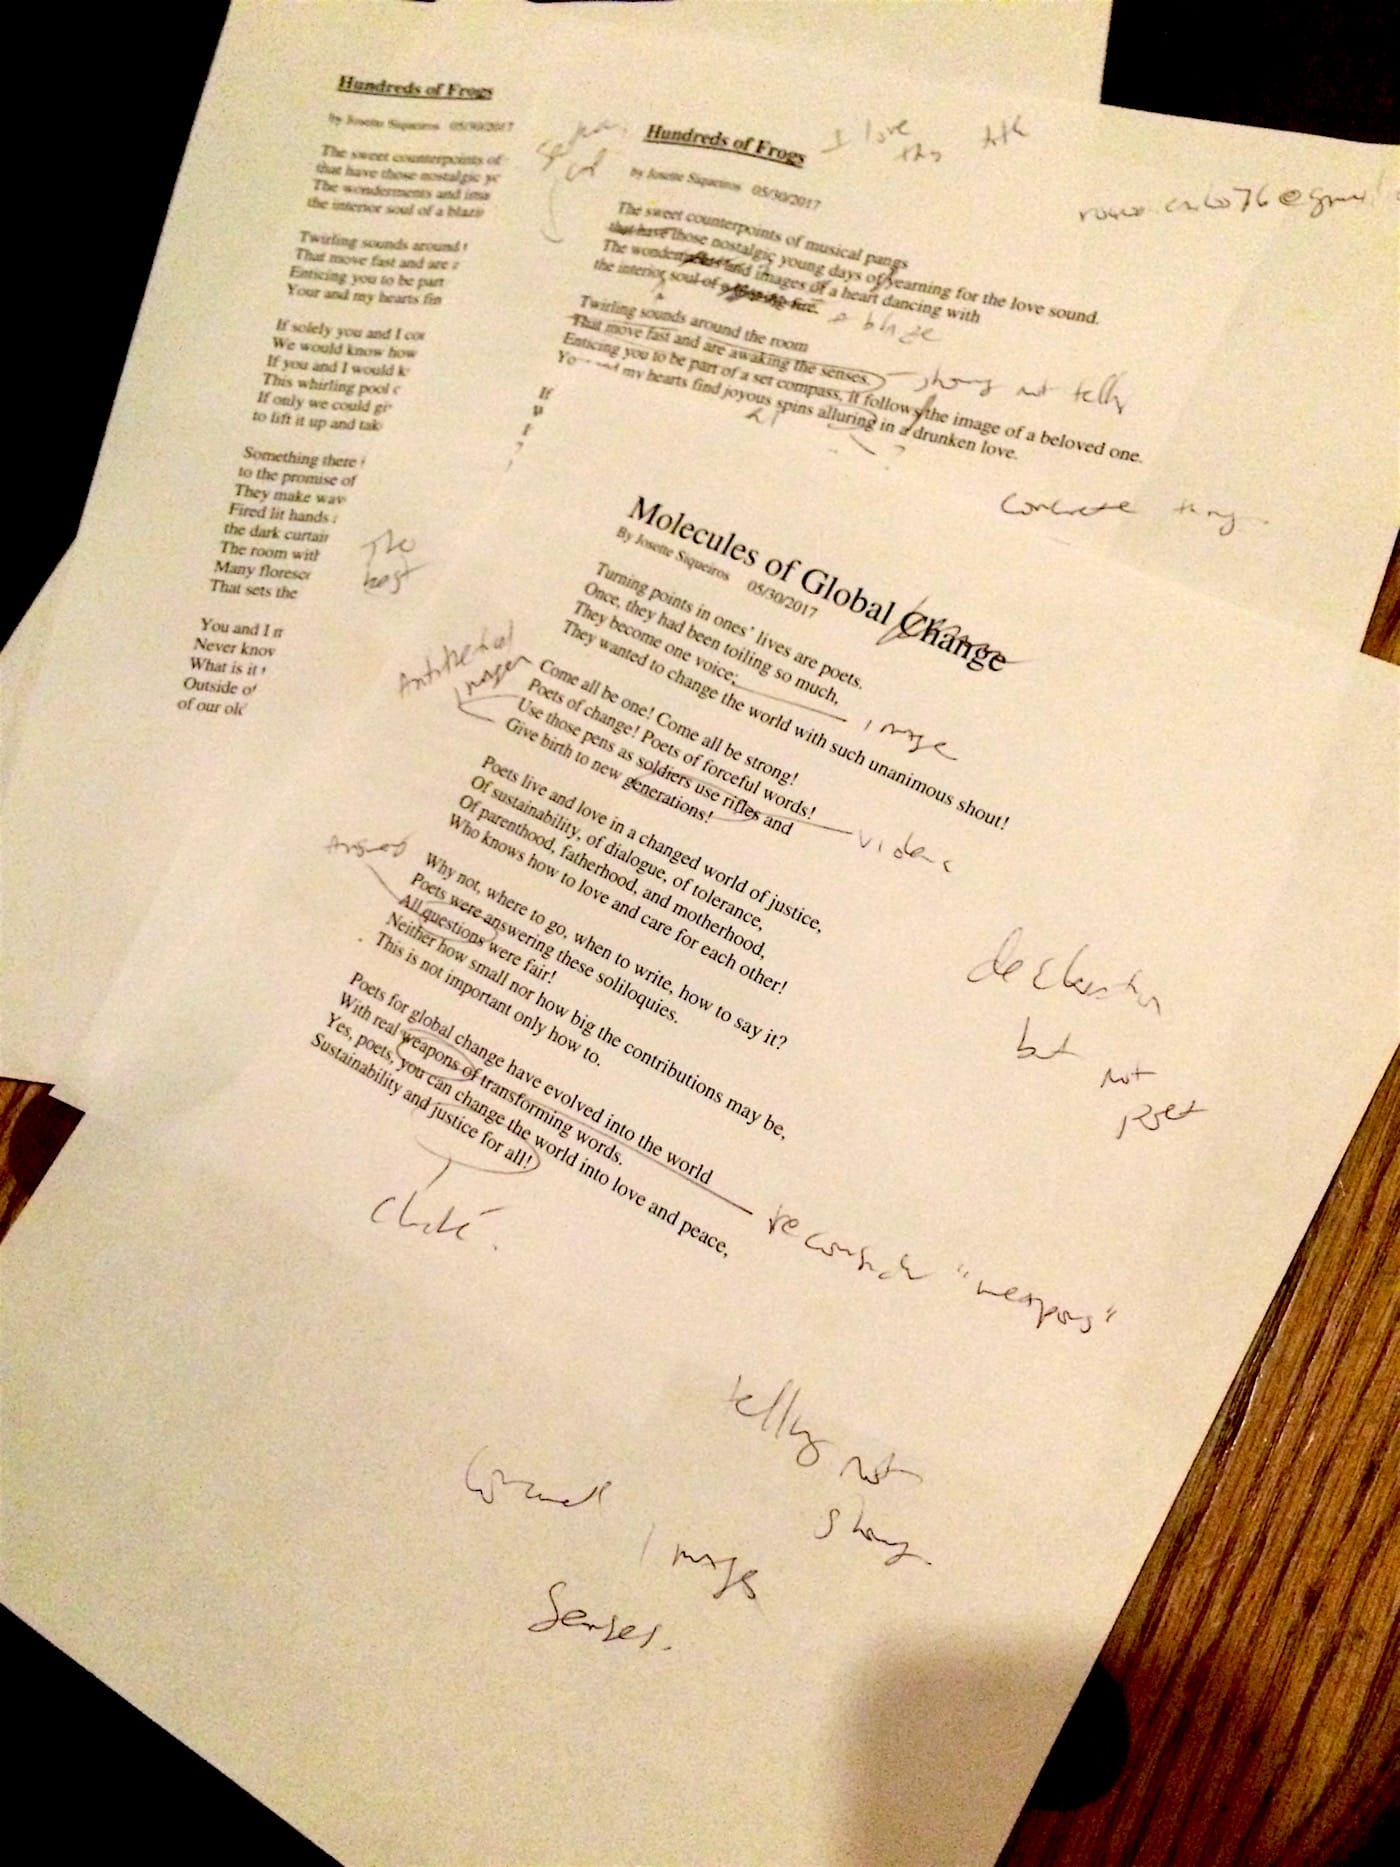 Hundreds of Frogs
by Josette Siqueiros 05/30/2017
The sweet counterpoints of
that have those nostalgic yo
The wonderments and ima
the interior soul of a blazin
Twirling sounds around t
That move fast and are a
Enticing you to be part
Your and my hearts fin
If solely you and I cou
We would know how
If you and I would k
This whirling pool o
If only we could gi
to lift it up and tak
Something there i
to the promise of
They make wav
Fired lit hands a
the dark curtain
The room with
Many floresc
That sets the
You and I n
Never know
What is it
Outside of
of our old
The
best
Hundreds of Frogs
I love this title
by Josette Siqueiros 05/30/2017
The sweet counterpoints of musical pangs
that have those nostalgic young days of yearning for the love sound.
The wonderments and images of a heart dancing with
the interior soul of a blazing fire.
ablaze
Twirling sounds around the room
That move fast and are awaking the senses.
showing not telling
Enticing you to be part of a set compass, it follows the image of a beloved one.
my hearts find joyous spins alluring in a drunken love.
?
If
concrete things
Molecules of Global Change
By Josette Siqueiros 05/30/2017
Turning points in ones' lives are poets.
Once, they had been toiling so much,
They become one voice;
They wanted to change the world with such unanimous shout!
image
Antithetical
images
Come all be one! Come all be strong!
Poets of change! Poets of forceful words!
Use those pens as soldiers use rifles and
Give birth to new generations!
violence
Poets live and love in a changed world of justice,
Of sustainability, of dialogue, of tolerance,
Of parenthood, fatherhood, and motherhood,
Who knows how to love and care for each other!
Why not, where to go, when to write, how to say it?
Poets were answering these soliloquies.
All questions were fair!
Neither how small nor how big the contributions may be,
This is not important only how to.
declaration
but not
poet
Poets for global change have evolved into the world
With real weapons of transforming words.
Yes, poets, you can change the world into love and peace,
Sustainability and justice for all!
Cliché.
reconsider "weapons"
telling not
showing.
images
Senses.